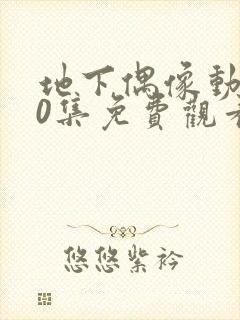 地下偶像動
0集免費觀看
悠悠紫衿